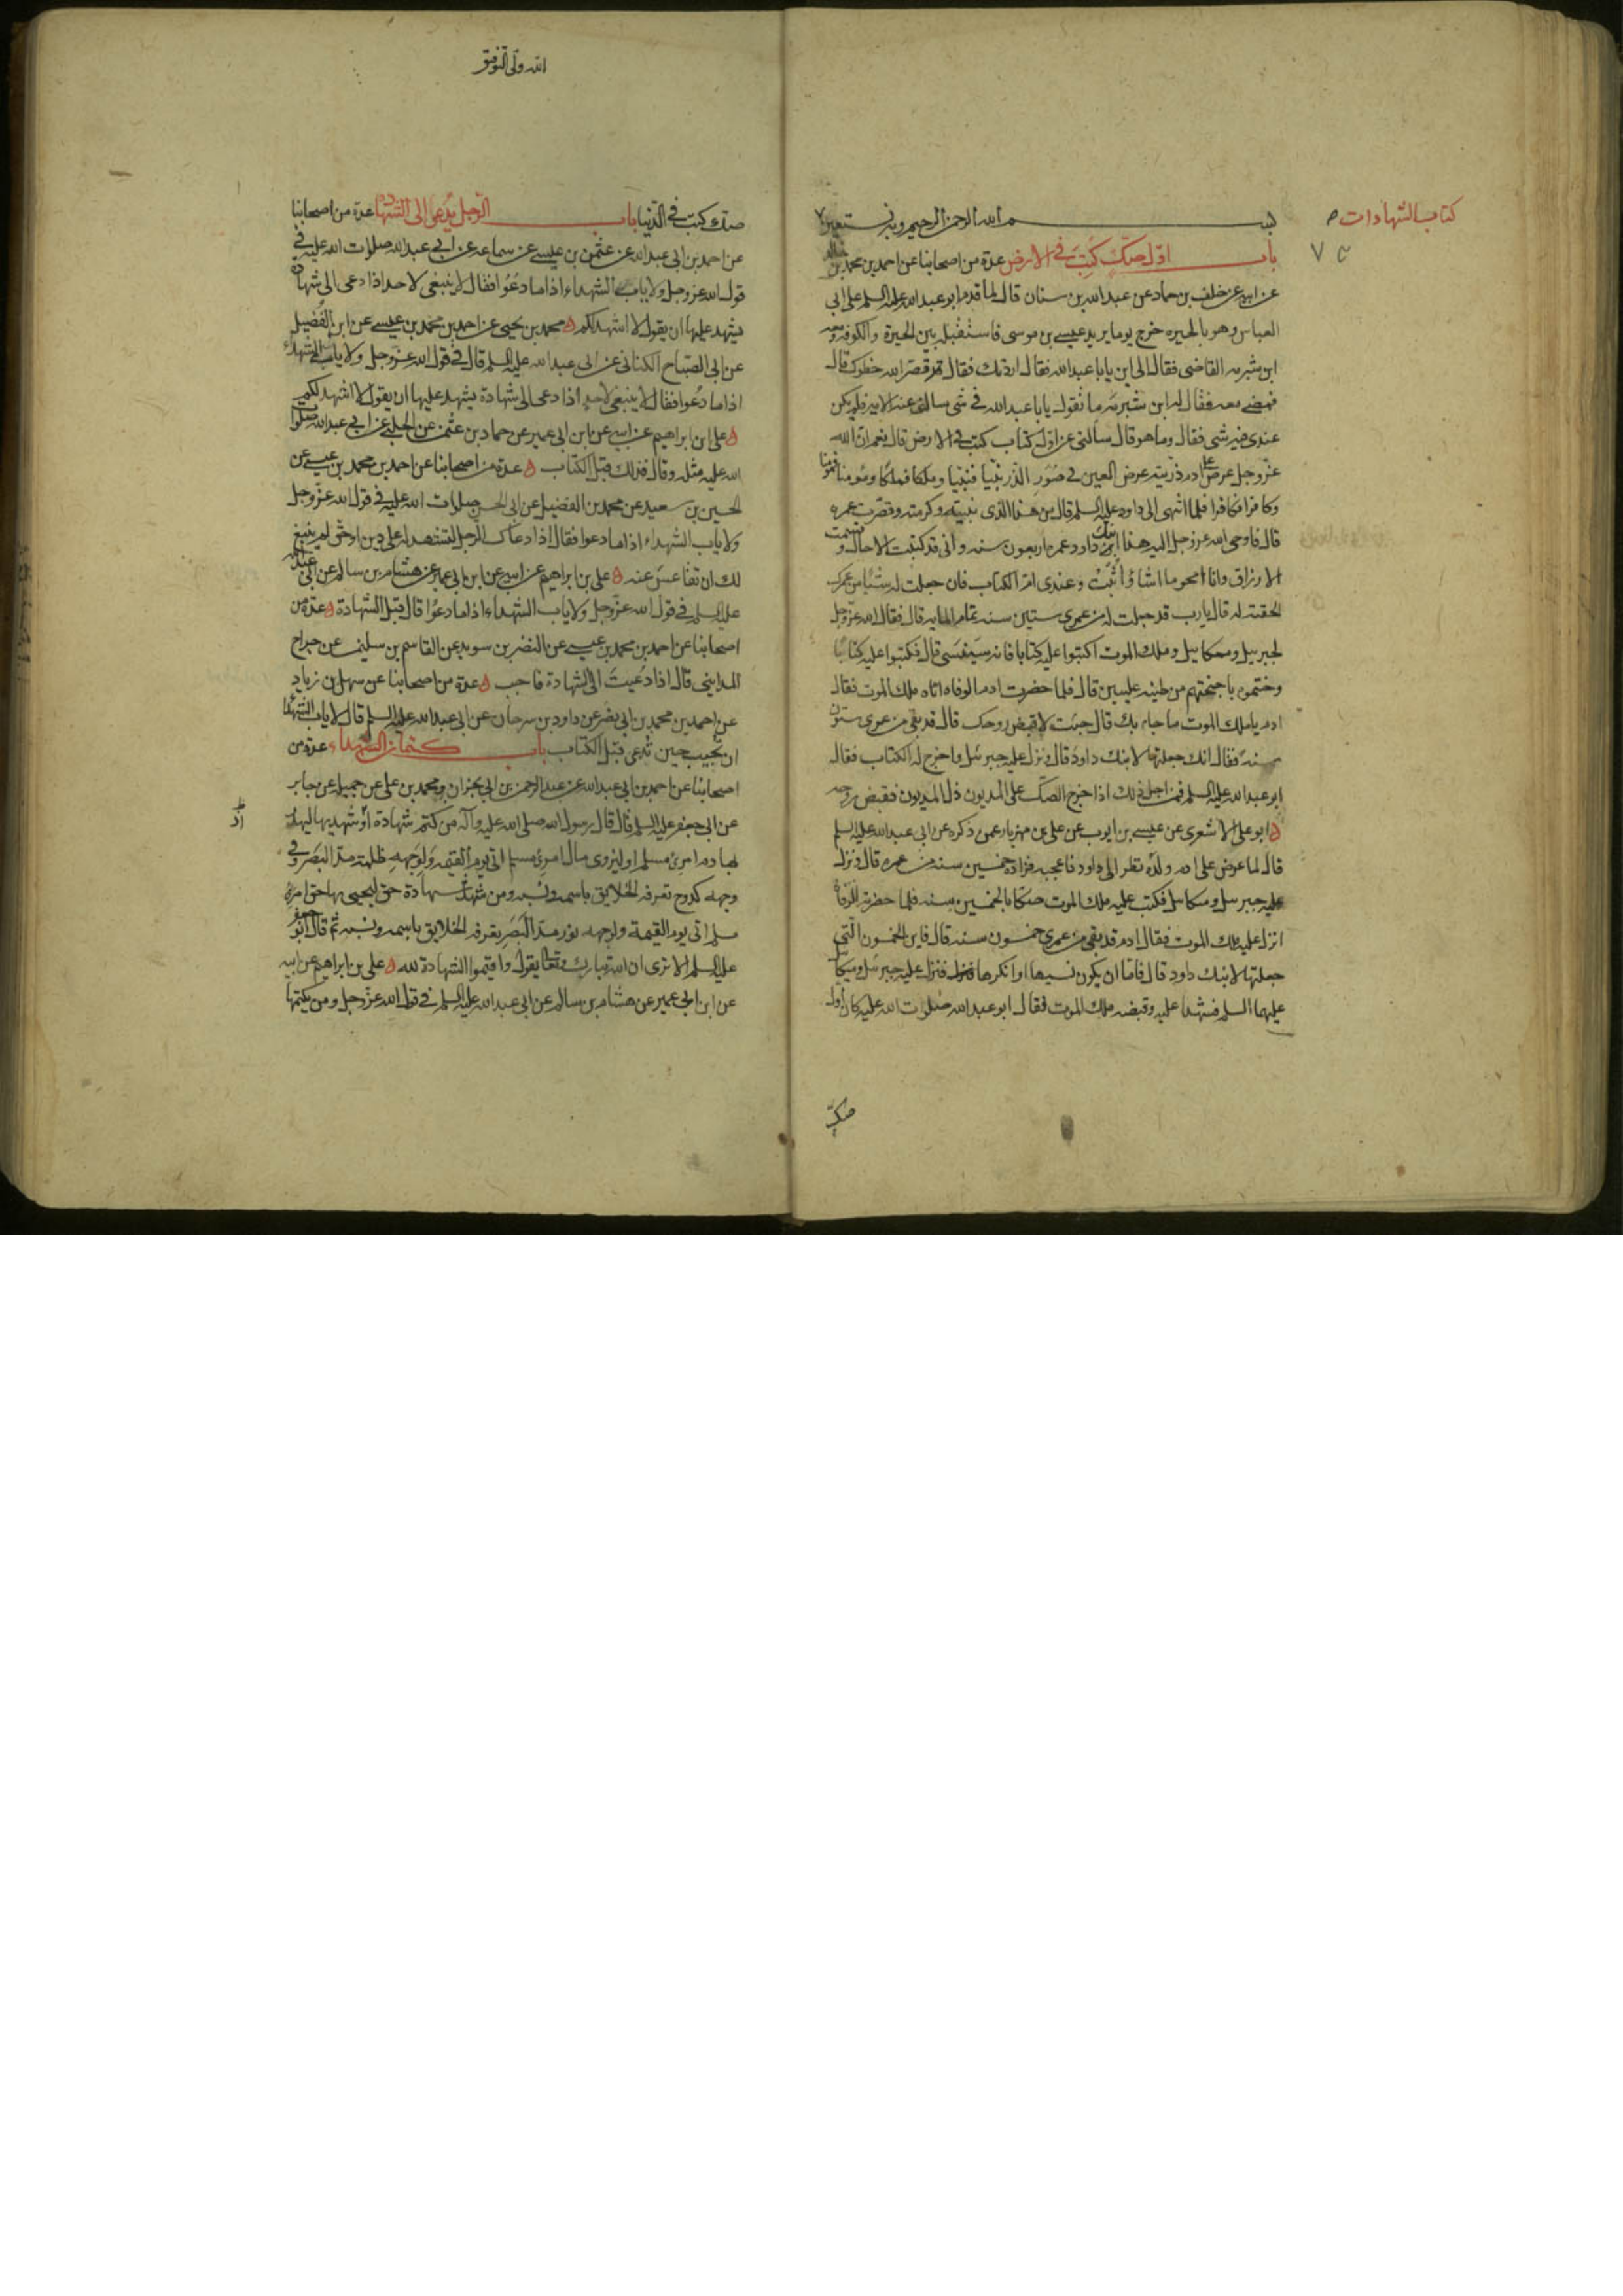 كتاب الشهادات
بسم الله الرحمن الرحيم وبه نستعين
باب اول صك كتب في الارض عدة من اصحابنا عن احمد بن محمد بن خالد
عن ابيه عن خلف بن حماد عن عبدالله بن سنان قال لما قدم ابو عبدالله عليه السلم على ابي
العباس وهو بالحيره خرج يوما يريد عيسى بن موسى فاستقبله بين الحيرة والكوفه ومعه
ابن شبرمه القاضى فقال الى اين يابا عبدالله فقال اردتك فقال قد قصر الله خطوك قال
فمضى معه فقال له ابن شبرمه ما تقول يابا عبدالله في شى سالنى عنه الامير فلم يكن
عندى فيه شى فقال وما هو قال سألنى عن اول كتاب كتب في الارض قال نعم ان الله
عزوجل عرض على ادم ذريته عرض العين في صور الذر نبيا فنبيا وملكا فملكا ومومنا فمومنا
وكافرا فكافرا فلما انتهى الى داود عليه السلم قال من هذا الذى نبيته وكرمته وقصرت عمره
قال فاوحى الله عزوجل اليه هذا ابنك داود عمره اربعون سنه وانى قد كتبت الاجال وقسمت
الارزاق وانا امحو ما اشاء واثبت وعندى ام الكتاب فان جعلت له شيئا من عمرك
الحقته له قال يارب قد جعلت له من عمرى ستين سنه تمام المايه قال فقال الله عزوجل
لجبرييل وميكاييل وملك الموت اكتبوا عليه كتابا فانه سينسى قال فكتبوا عليه كتابا
وختموه باجنحتهم من طينه عليين قال فلما حضرت ادم الوفاه اتاه ملك الموت فقال
ادم ياملك الموت ما جاء بك قال جئت لاقبض روحك قال قد بقى من عمرى ستون
سنة فقال انك جعلتها لابنك داود قال ونزل عليه جبرئيل واخرج له الكتاب فقال
ابو عبدالله عليه السلم فمن اجل ذلك اذا خرج الصك على المديون ذل المديون فقبض روحه
ابو على الاشعرى عن عيسى بن ايوب عن على بن مهزيار عمن ذكره عن ابى عبدالله عليه السلم
قال لما عرض على ادم ولده نظر الى داود فاعجبه فزاده خمسين سنه من عمره قال ونزل
عليه جبرييل وميكاييل فكتب عليه ملك الموت صكا بالخمسين سنه فلما حضرته الوفاة
انزل عليه ملك الموت فقال ادم قد بقى من عمرى خمسون سنه قال فاين الخمسون التى
جعلتها لابنك داود قال فاما ان يكون نسيها او انكرها فنزل عليه جبرئيل وميكائيل
عليهما السلم فشهدا عليه وقبضه ملك الموت فقال ابو عبدالله صلوات الله عليه كان اول
صك
الله ولى التوفيق
صك كتب في الدنيا باب الرجل يدعى الى الشهادة عدة من اصحابنا
عن احمد بن ابى عبدالله عن عثمن بن عيسى عن سماعه عن ابي عبدالله صلوات الله عليه في
قول الله عزوجل ولاياب الشهداء اذا ما دعوا فقال لا ينبغى لاحد اذا دعى الى شهادة
يشهد عليها ان يقول لا اشهد لكم محمد بن يحيى عن احمد بن محمد بن عيسى عن ابن الفضيل
عن ابى الصباح الكنانى عن ابى عبدالله عليه السلم قال في قول الله عزوجل ولا ياب الشهداء
اذا ما دعوا فقال لا ينبغى لاحد اذا دعى الى شهادة يشهد عليها ان يقول لا اشهد لكم
على ابن ابراهيم عن ابيه عن ابن ابى عمير عن حماد بن عثمن عن الحلبى عن ابي عبدالله صلوات
الله عليه مثله وقال فذلك قبل الكتاب عدة من اصحابنا عن احمد بن محمد بن عيسى عن
الحسين بن سعيد عن محمد بن الفضيل عن ابى الحسن صلوات الله عليه في قول الله عزوجل
ولا ياب الشهداء اذا ما دعوا فقال اذا دعاك الرجل لتشهد له على دين او حق لم ينبغ
لك ان تقاعس عنه على بن ابراهيم عن ابيه عن ابن ابى عمير عن هشام بن سالم عن ابى عبدالله
عليه السلم في قول الله عزوجل ولا ياب الشهداء اذا ما دعوا قال قبل الشهادة عدة من
اصحابنا عن احمد بن محمد بن عيسى عن النضر بن سويد عن القاسم بن سليمن عن جراح
المداينى قال اذا دعيت الى الشهادة فاجب عدة من اصحابنا عن سهل بن زياد
عن احمد بن محمد بن ابى نصر عن داود بن سرحان عن ابى عبدالله عليه السلم قال لا ياب الشهداء
ان تجيب حين تدعى قبل الكتاب باب كتمان الشهداء عدة من
اصحابنا عن احمد بن ابى عبدالله عن عبدالرحمن بن ابى نجران ومحمد بن على عن جميله عن جابر
عن ابى جعفر عليه السلم قال قال رسول الله صلى الله عليه وآله من كتم شهادة او شهد بها ليهدر
بها دم امرئ مسلم او ليزوى مال امرئ مسلم اتى يوم القيمه ولوجهه ظلمة مد البصر وفي
وجهه كدوح تعرفه الخلايق باسمه ونسبه ومن شهد شهادة حق ليحيى بها حق امرء
مسلم اتى يوم القيمة ولوجهه نور مد البصر يعرفه الخلايق باسمه ونسبه ثم قال ابو جعفر
عليه السلم الا ترى ان الله تبارك وتعالى يقول واقيموا الشهادة لله على بن ابراهيم عن ابيه
عن ابن ابى عمير عن هشام بن سالم عن ابى عبدالله عليه السلم في قول الله عزوجل ومن يكتمها